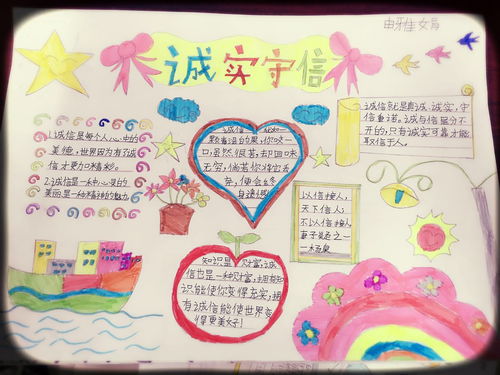 由雅文
诚实守信
1.诚信是每个人心中的
美德,世界因为有了诚
信才更加精彩。
2.诚信是一种心灵的
美丽,是一种精神的魅力
诚信 一枚
青涩的果,你咬一
口,虽然很苦,却回味
无穷,倘若你将它丢
弃,便会
诚信就是真诚、诚实,守
信重诺。诚与信是分不
开的,只有诚实可靠才能
取信于人。
以信接人,
天下信人;
不以信接人,
妻子疑之
知识是 财富,诚
信也是一种财富,拥有知
识能使你变得充实,拥
有诚信能使世界变
得更美好!